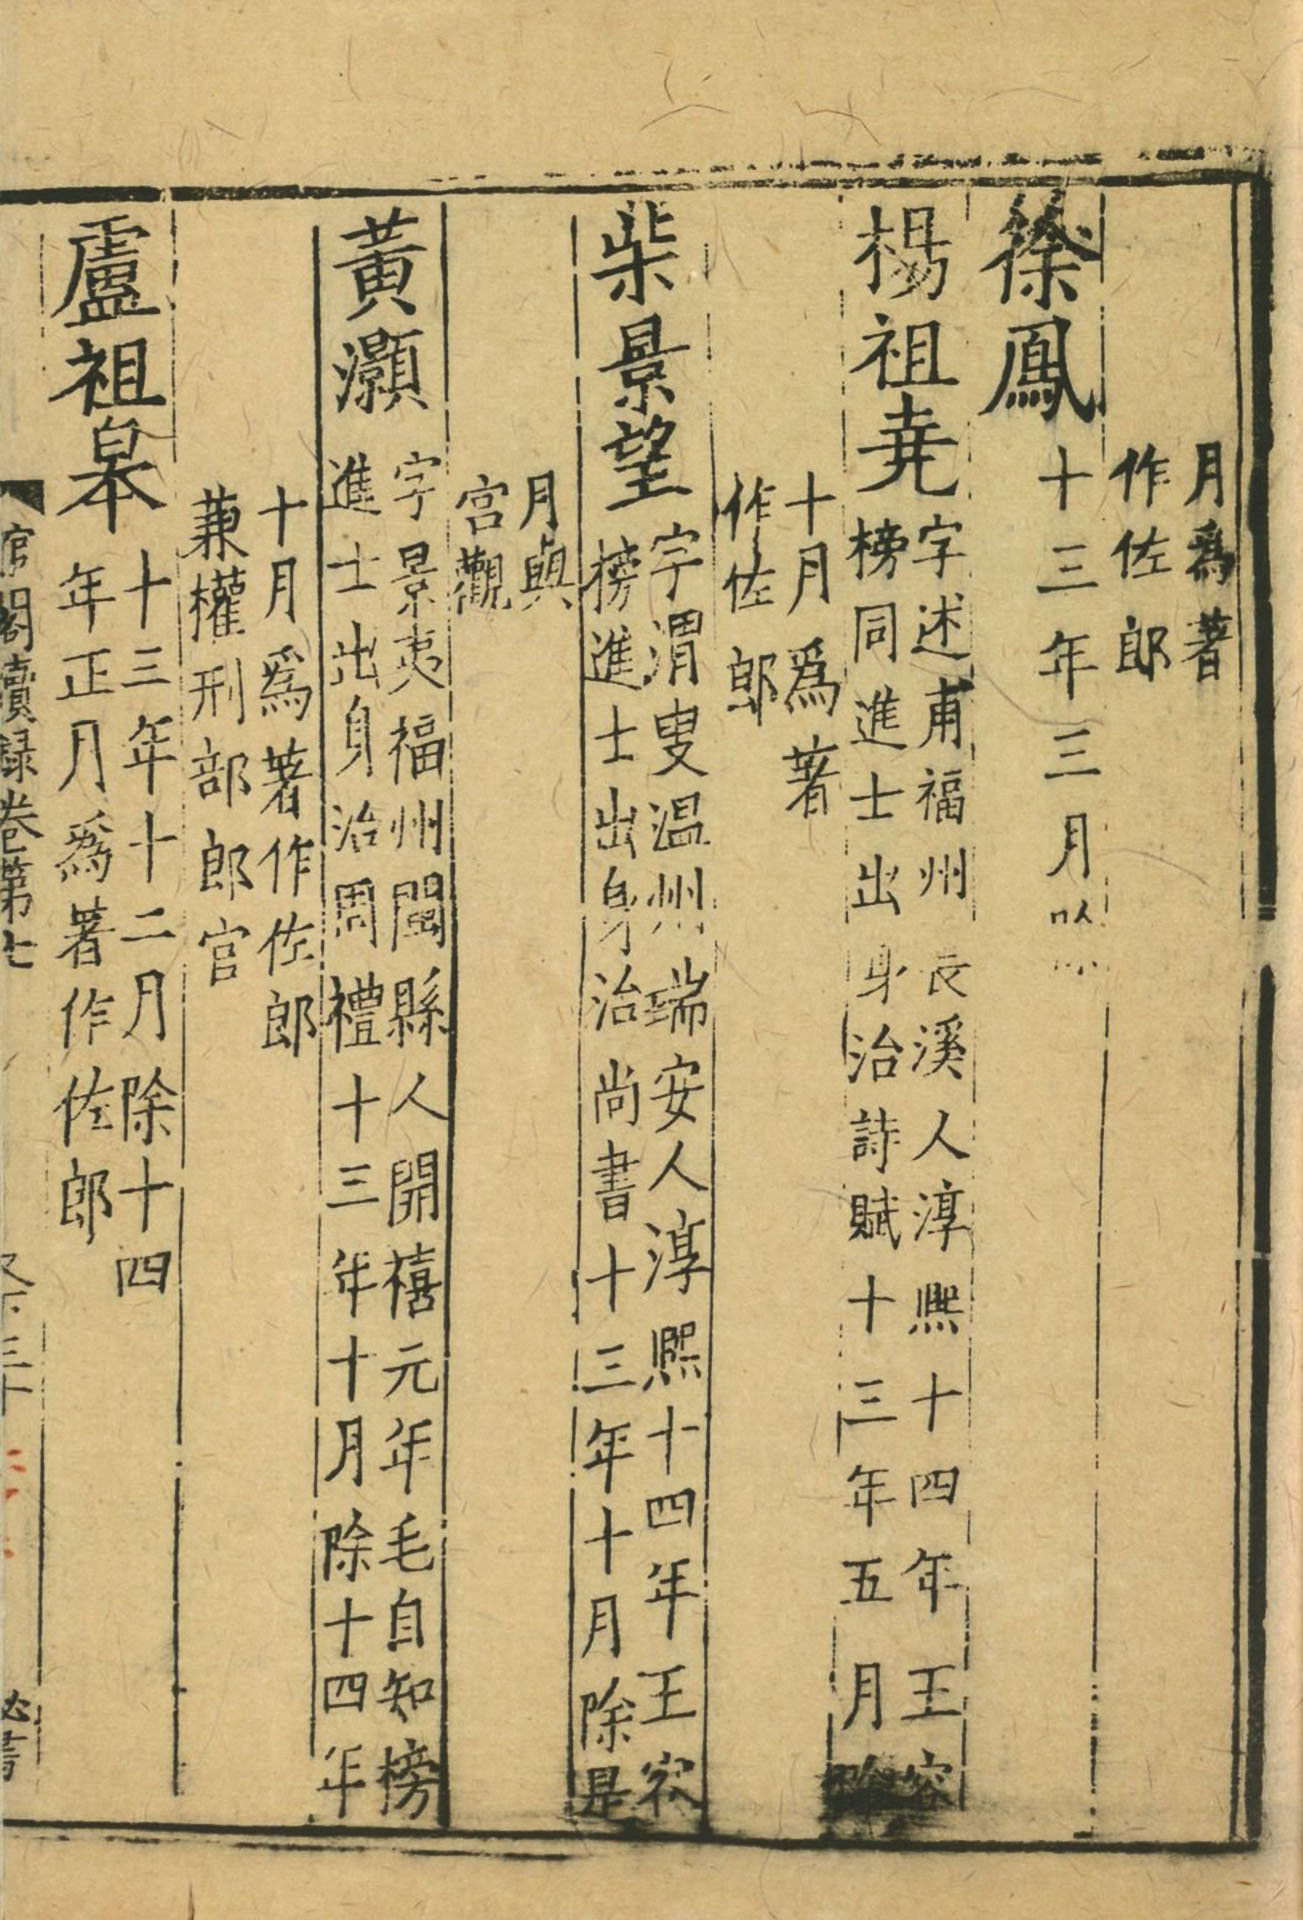 月爲著
作佐郎
徐鳳
十三年三月以
楊祖尭
字述甫福州長溪人淳熈十四年王容
榜同進士出身治詩賦十三年五月除
十月爲著
作佐郎
柴景望
字渭叟温州瑞安人淳熈十四年王容
榜進士出身治尚書十三年十月除是
月與
宫觀
黃灝
字景夷福州閩縣人開禧元年毛自知榜
進士出身治周禮十三年十月除十四年
十月爲著作佐郎
兼權刑部郎官
盧祖皋
十三年十二月除十四
年正月爲著作佐郎
館閣續録卷第七